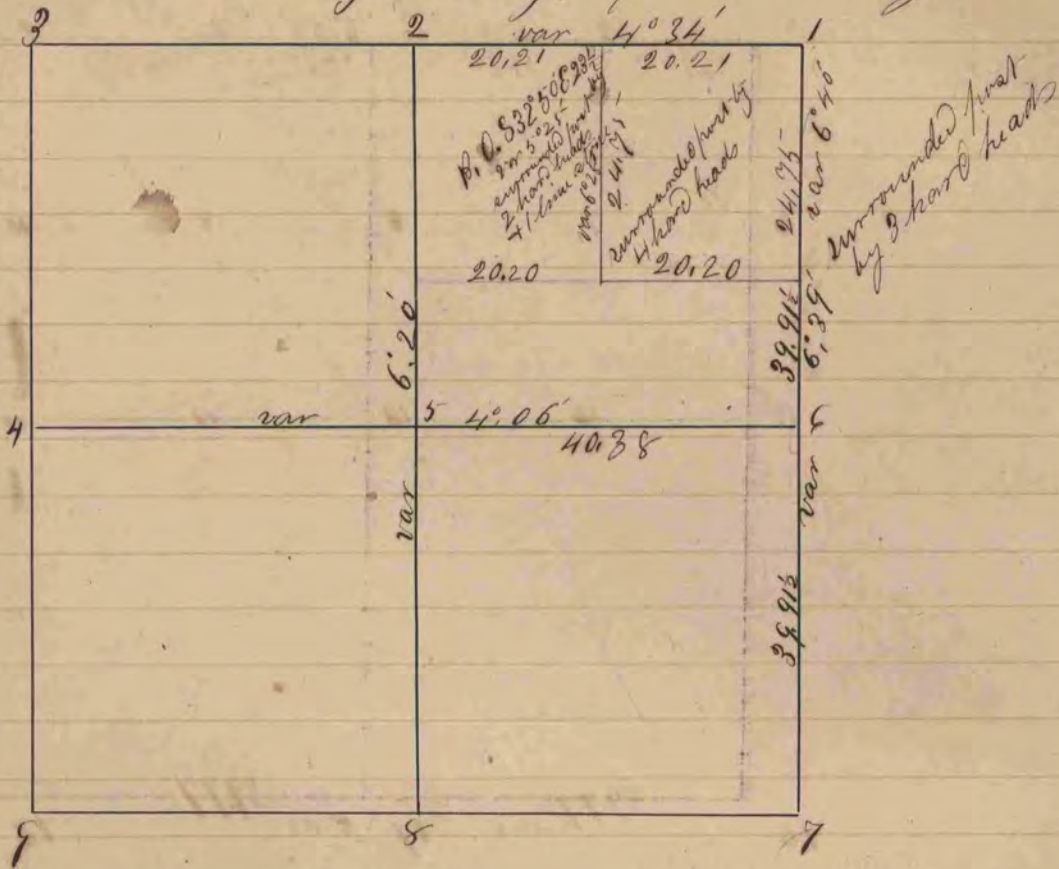 3 2 var 4° 34' 1
20,21 20.21
B. O. S32° 50' E 28
var 5° 25'
surrounded post by
2 hard heads
+ 1 lime stone
var 6° 25'
24.75
surrounded post by
4 hard heads
24.75
var 6° 40'
surrounded post
by 3 hard heads
20.20 20.20
6° 20'
39.91½
6° 39'
4 var 5 4° 06' 6
40.38
var
var
39.91½
9 8 7